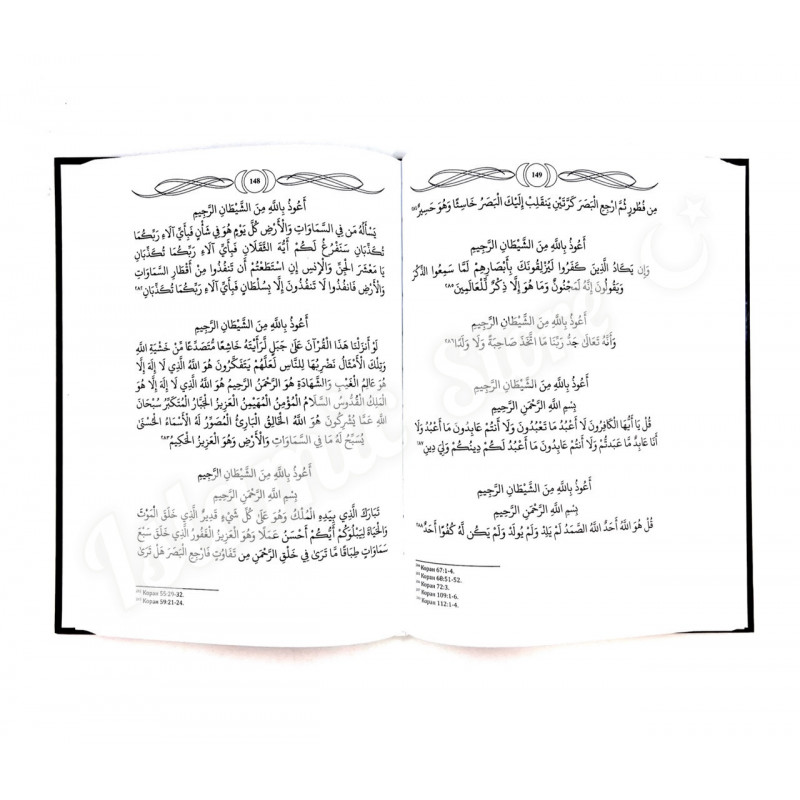 148
أَعُوذُ بِاللَّهِ مِنَ الشَّيْطَانِ الرَّجِيمِ
يَسْأَلُهُ مَن فِي السَّمَاوَاتِ وَالْأَرْضِ كُلَّ يَوْمٍ هُوَ فِي شَأْنٍ فَبِأَيِّ آلَاءِ رَبِّكُمَا
تُكَذِّبَانِ سَنَفْرُغُ لَكُمْ أَيُّهَ الثَّقَلَانِ فَبِأَيِّ آلَاءِ رَبِّكُمَا تُكَذِّبَانِ
يَا مَعْشَرَ الْجِنِّ وَالْإِنسِ إِنِ اسْتَطَعْتُمْ أَن تَنفُذُوا مِنْ أَقْطَارِ السَّمَاوَاتِ
وَالْأَرْضِ فَانفُذُوا لَا تَنفُذُونَ إِلَّا بِسُلْطَانٍ فَبِأَيِّ آلَاءِ رَبِّكُمَا تُكَذِّبَانِ
أَعُوذُ بِاللَّهِ مِنَ الشَّيْطَانِ الرَّجِيمِ
لَوْ أَنزَلْنَا هَذَا الْقُرْآنَ عَلَى جَبَلٍ لَّرَأَيْتَهُ خَاشِعًا مُّتَصَدِّعًا مِّنْ خَشْيَةِ اللَّهِ
وَتِلْكَ الْأَمْثَالُ نَضْرِبُهَا لِلنَّاسِ لَعَلَّهُمْ يَتَفَكَّرُونَ هُوَ اللَّهُ الَّذِي لَا إِلَهَ إِلَّا هُوَ
عَالِمُ الْغَيْبِ وَالشَّهَادَةِ هُوَ الرَّحْمَنُ الرَّحِيمُ هُوَ اللَّهُ الَّذِي لَا إِلَهَ إِلَّا هُوَ
الْمَلِكُ الْقُدُّوسُ السَّلَامُ الْمُؤْمِنُ الْمُهَيْمِنُ الْعَزِيزُ الْجَبَّارُ الْمُتَكَبِّرُ سُبْحَانَ
اللَّهِ عَمَّا يُشْرِكُونَ هُوَ اللَّهُ الْخَالِقُ الْبَارِئُ الْمُصَوِّرُ لَهُ الْأَسْمَاءُ الْحُسْنَى
يُسَبِّحُ لَهُ مَا فِي السَّمَاوَاتِ وَالْأَرْضِ وَهُوَ الْعَزِيزُ الْحَكِيمُ
أَعُوذُ بِاللَّهِ مِنَ الشَّيْطَانِ الرَّجِيمِ
بِسْمِ اللَّهِ الرَّحْمَنِ الرَّحِيمِ
تَبَارَكَ الَّذِي بِيَدِهِ الْمُلْكُ وَهُوَ عَلَى كُلِّ شَيْءٍ قَدِيرٌ الَّذِي خَلَقَ الْمَوْتَ
وَالْحَيَاةَ لِيَبْلُوَكُمْ أَيُّكُمْ أَحْسَنُ عَمَلًا وَهُوَ الْعَزِيزُ الْغَفُورُ الَّذِي خَلَقَ سَبْعَ
سَمَاوَاتٍ طِبَاقًا مَّا تَرَى فِي خَلْقِ الرَّحْمَنِ مِن تَفَاوُتٍ فَارْجِعِ الْبَصَرَ هَلْ تَرَى
Коран 55:29-32.
Коран 59:21-24.
149
مِن فُطُورٍ ثُمَّ ارْجِعِ الْبَصَرَ كَرَّتَيْنِ يَنقَلِبْ إِلَيْكَ الْبَصَرُ خَاسِئًا وَهُوَ حَسِيرٌ
أَعُوذُ بِاللَّهِ مِنَ الشَّيْطَانِ الرَّجِيمِ
وَإِن يَكَادُ الَّذِينَ كَفَرُوا لَيُزْلِقُونَكَ بِأَبْصَارِهِمْ لَمَّا سَمِعُوا الذِّكْرَ
وَيَقُولُونَ إِنَّهُ لَمَجْنُونٌ وَمَا هُوَ إِلَّا ذِكْرٌ لِّلْعَالَمِينَ
أَعُوذُ بِاللَّهِ مِنَ الشَّيْطَانِ الرَّجِيمِ
وَأَنَّهُ تَعَالَى جَدُّ رَبِّنَا مَا اتَّخَذَ صَاحِبَةً وَلَا وَلَدًا
أَعُوذُ بِاللَّهِ مِنَ الشَّيْطَانِ الرَّجِيمِ
بِسْمِ اللَّهِ الرَّحْمَنِ الرَّحِيمِ
قُلْ يَا أَيُّهَا الْكَافِرُونَ لَا أَعْبُدُ مَا تَعْبُدُونَ وَلَا أَنتُمْ عَابِدُونَ مَا أَعْبُدُ وَلَا
أَنَا عَابِدٌ مَّا عَبَدتُّمْ وَلَا أَنتُمْ عَابِدُونَ مَا أَعْبُدُ لَكُمْ دِينُكُمْ وَلِيَ دِينِ
أَعُوذُ بِاللَّهِ مِنَ الشَّيْطَانِ الرَّجِيمِ
بِسْمِ اللَّهِ الرَّحْمَنِ الرَّحِيمِ
قُلْ هُوَ اللَّهُ أَحَدٌ اللَّهُ الصَّمَدُ لَمْ يَلِدْ وَلَمْ يُولَدْ وَلَمْ يَكُن لَّهُ كُفُوًا أَحَدٌ
Коран 67:1-4.
Коран 68:51-52.
Коран 72:3.
Коран 109:1-6.
Коран 112:1-4.